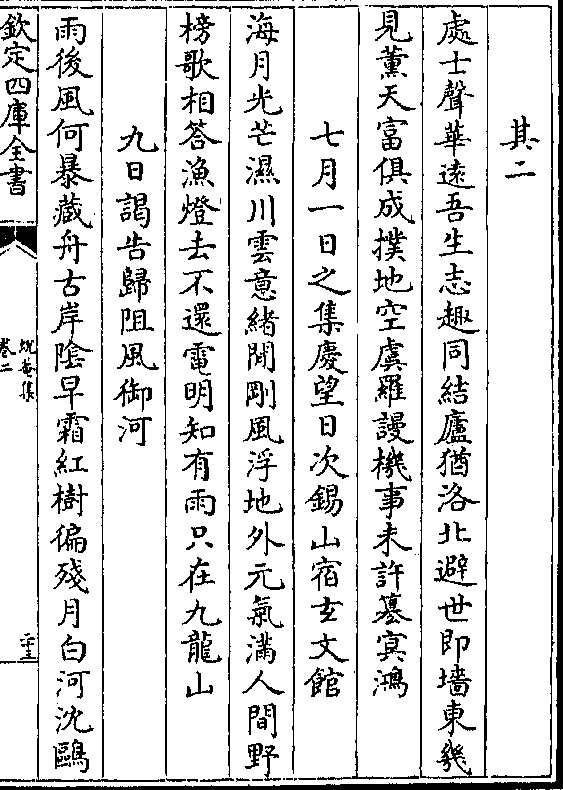 其二
處士聲華遠吾生志趣同結廬猶洛北避世即墻東幾
見薰天富俱成撲地空虞羅謾機事未許慕㝠鴻
七月一日之集慶望日次錫山宿玄文館
海月光芒濕川雲意緒閒剛風浮地外元氣滿人間野
榜歌相答漁燈去不還電明知有雨只在九龍山
九日謁告歸阻風御河
雨後風何暴藏舟古岸隂早霜紅樹偏殘月白河沈鷗
欽定四庫全書
卷二